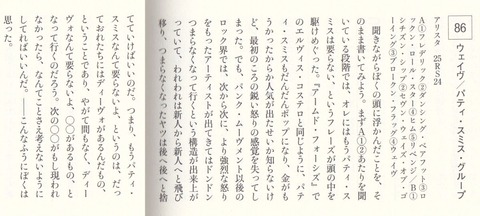 86
ウェイヴ/パティ・スミス・グループ
アリスタ 25RS24
A①フレデリック②ダンシング・ベアフット③ロックン・ロール・スター④ヒム⑤リベンジ/B①シチズン・シップ②セヴン・ウェイズ・オブ・ゴーイング③ブロークン・フラッグ④ウェイヴ
聞きながらぼくの頭に浮かんだことを、そ
のまま書いてみよう。まずA①②あたりを聞
いている段階では、オレにはもうパティ・ス
ミスは要らない、というフレーズが頭の中を
駆けめぐった。『アームド・フォーシズ』で
のエルヴィス・コステロと同じように、パテ
ィ・スミスもだんだんポップになり、金がも
うかったからか人気が出たせいか知らないけ
ど、最初のころの鋭い怒りの感覚を失ってし
まった。でも、パンク・ムーヴメント以後の
ロック界では、次から次に、より強烈な怒り
をもったアーティストが出てきてはドンドン
つまらなくなって行くという構造が出来上が
っていて、われわれは新人から新人へと飛び
移り、つまらなくなったヤツは後へ後へと捨
てていけばいいのだ。つまり、もうパティ・
スミスなんて要らないよ、というのは、だっ
ておれたちにはディーヴォがあるんだもの、
ということであり、やがて間もなく、ディー
ヴォなんて要らないよ、◯◯があるもの、と
なって行くのだろう。次の◯◯がもし現われ
なかったら、なんてことさえ考えないように
なっていくんだ。――こんなふうにぼくは
思った。